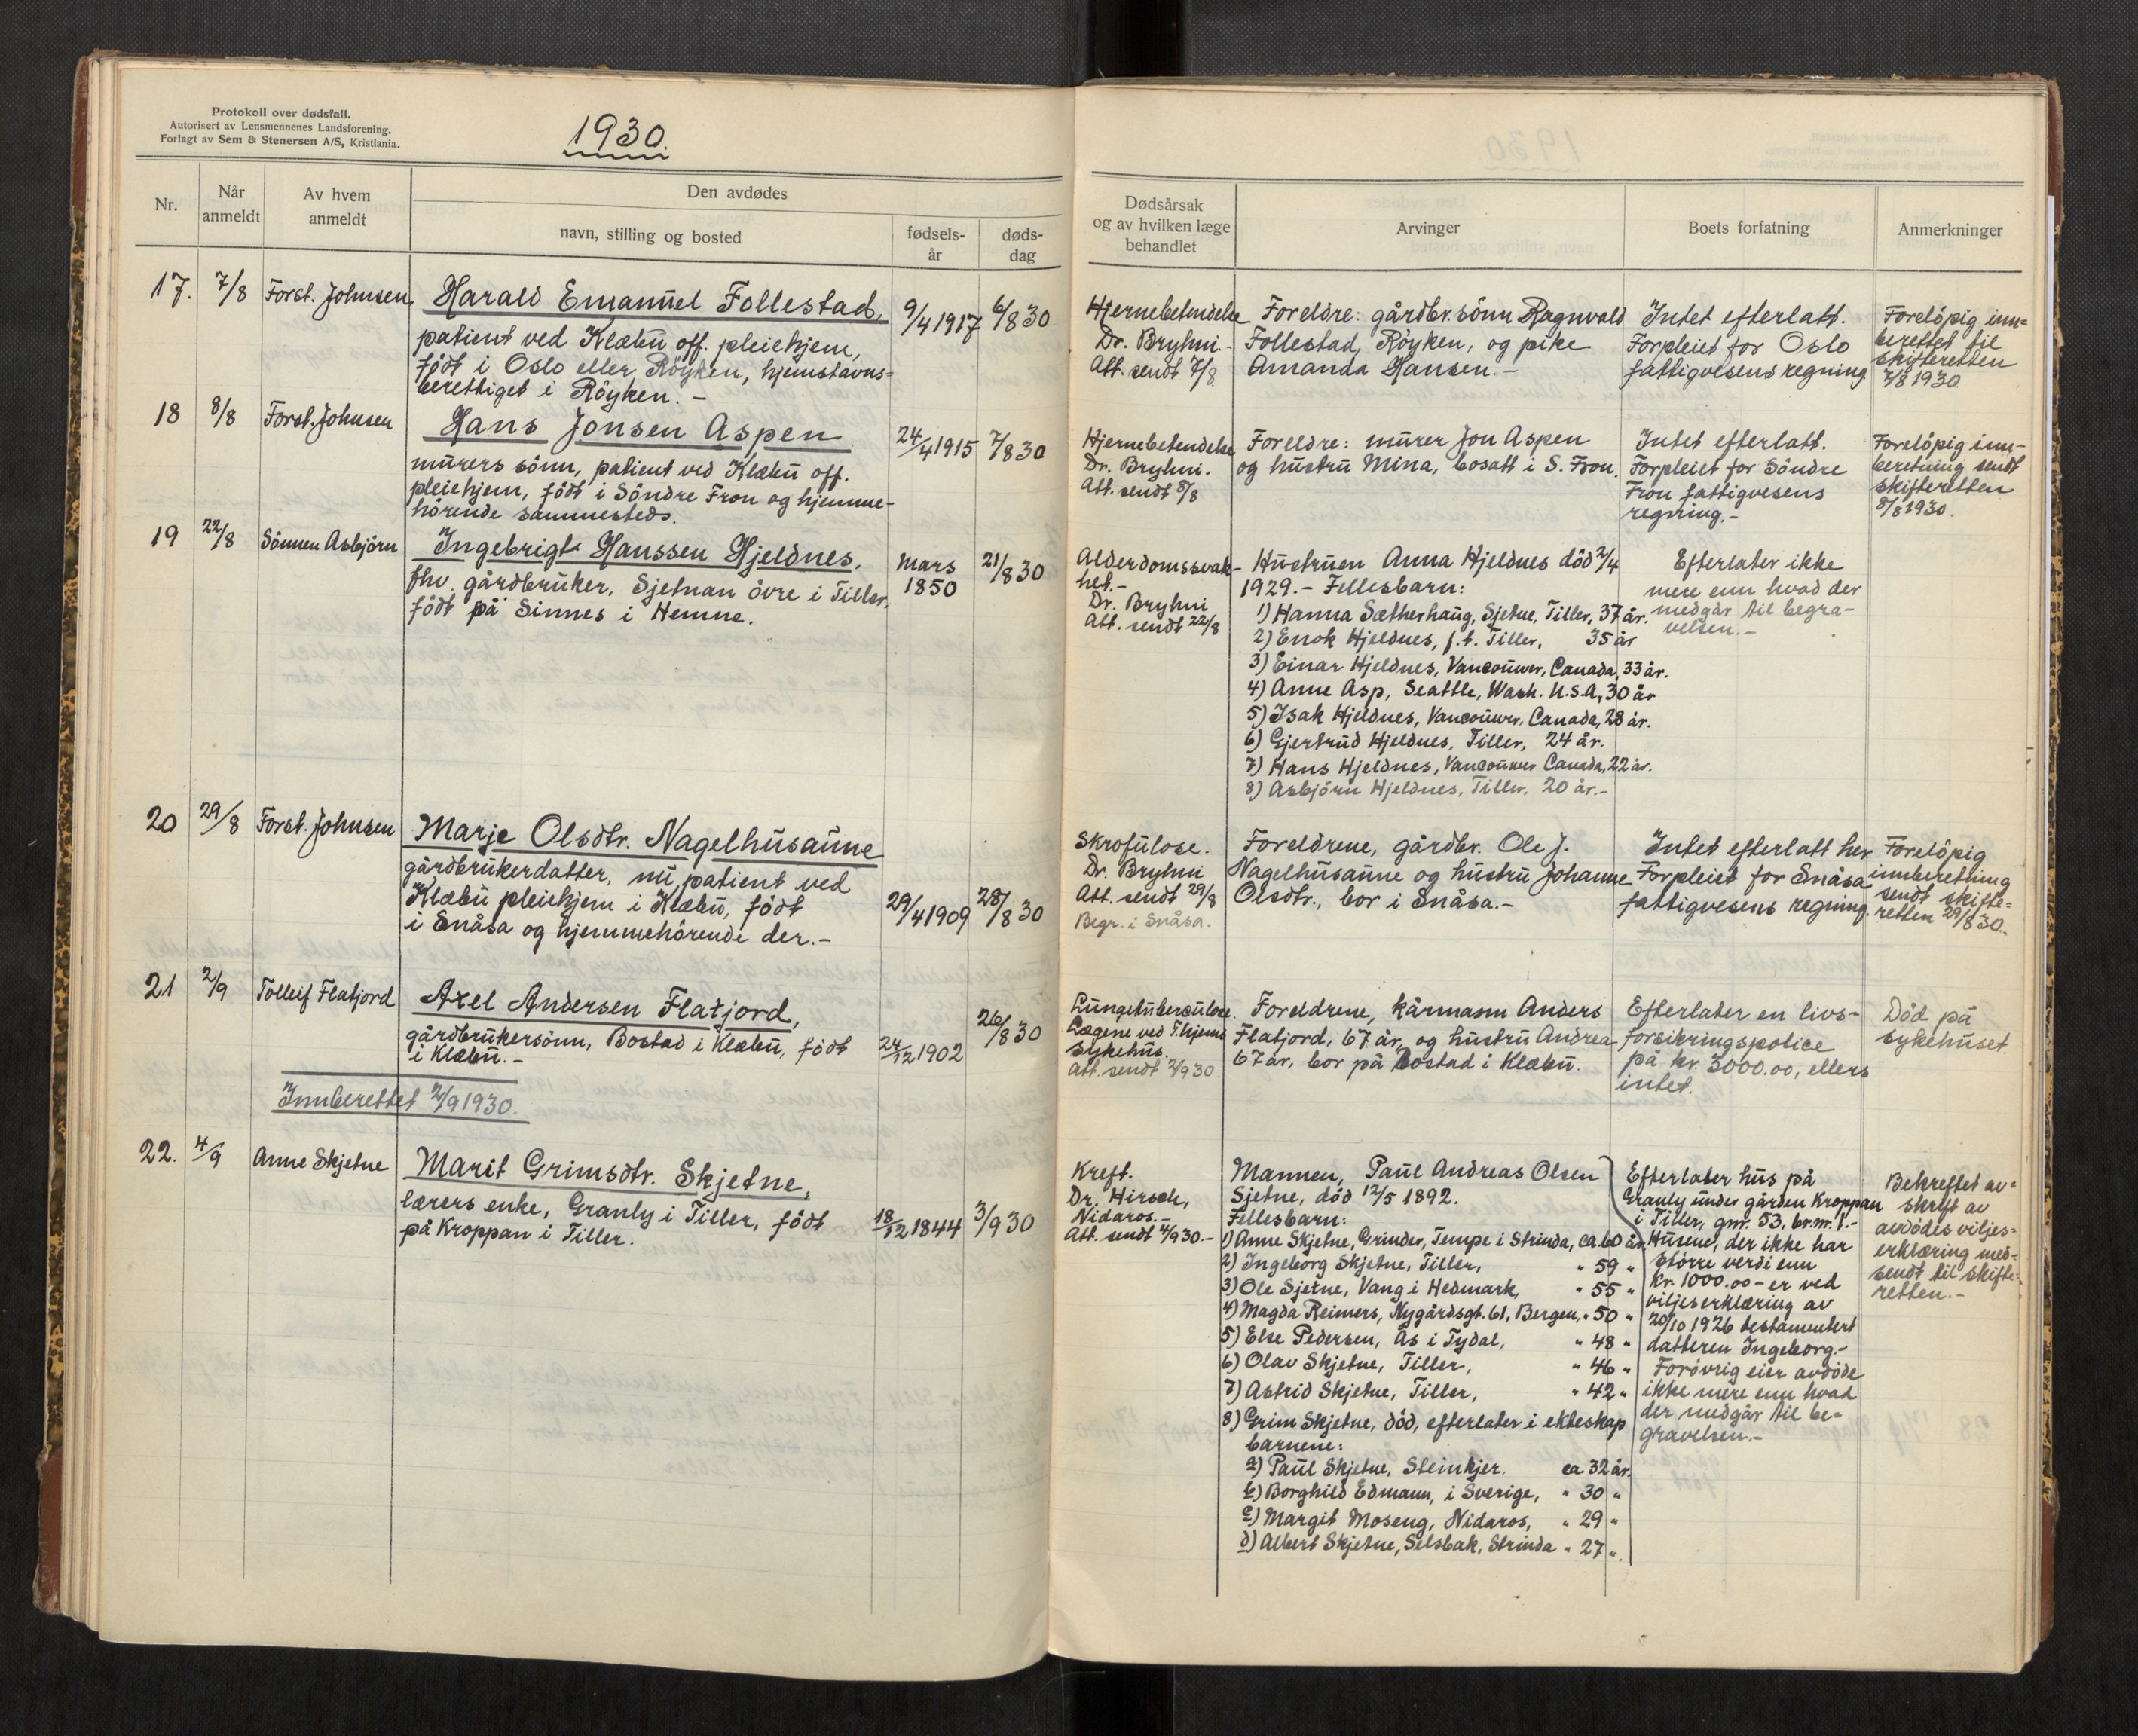 Protokoll over dødsfall.
Autorisert av Lensmennenes Landsforening.
Forlagt av Sem & Stenersen A/S, Kristiania.
1930.
Nr.
Når
anmeldt
Av hvem
anmeldt
Den avdødes
navn, stilling og bosted
fødsels-
år
døds-
dag
Dødsårsak
og av hvilken læge
behandlet
Arvinger
Boets forfatning
Anmerkninger
17. 7/8 Forst. Johnsen
Harald Emanuel Follestad,
patient ved Klæbu off. pleiehjem,
født i Oslo eller Røyken, hjemstavns=
berettiget i Røyken. -
9/4 1917 6/8 30
Hjernebetendelse
Dr. Bryhni -
Att. sendt 7/8.
Foreldre: gårdbr.sønn Ragnvald
Follestad, Røyken, og pike
Amanda Hansen. -
Intet efterlatt.
Forpleiet for Oslo
fattigvesens regning
Foreløpig inn=
berettet til
skifteretten
7/8 1930.
18 8/8 Forst. Johnsen
Hans Jonsen Aspen
murers sønn, patient ved Klæbu off.
pleiehjem, født i Söndre Fron og hjemme-
hörende sammesteds.
24/4 1915 7/8 30
Hjernebetendelse
Dr. Bryhni.
Att. sendt 8/8
Foreldre: murer Jon Aspen
og hustru Mina, bosatt i S. Fron.
Intet efterlatt.
Forpleiet for Söndre
Fron fattigvesens
regning.-
Foreløpig inn-
beretning sendt
skifteretten
8/8 1930.
19 22/8 Sönnen Asbjörn
Ingebrigt Hanssen Hjeldnes.
fhv. gårdbruker, Sjetnan övre i Tiller,
født på Sinnes i Hemne.
Mars
1850
21/8 30
Alderdomssvak-
het.-
Dr. Bryhni
Att. sendt 22/8
Hustruen Anna Hjeldnes död 2/4
1929. - Fellesbarn:
1) Hanna Sætherhaug, Sjetne, Tiller, 37 år.
2) Enok Hjeldnes, f.t. Tiller, 35 år
3) Einar Hjeldnes, Vancouver, Canada, 33 år.
4) Anne Asp, Seattle, Wash. U.S.A, 30 år
5) Isak Hjeldnes, Vancouver, Canada, 28 år.
6) Gjertrud Hjeldnes, Tiller, 24 år.
7) Hans Hjeldnes, Vancouver Canada, 22 år.
8) Asbjörn Hjeldnes, Tiller. 20 år.-
Efterlater ikke
mere enn hvad der
medgår til begra-
velsen.-
20 29/8 Forst. Johnsen
Marje Olsdtr. Nagelhusaune
gårdbrukerdatter, nu patient ved
Klæbu pleiehjem i Klæbu, født
i Snåsa og hjemmehörende der.-
29/4 1909 28/8 30
Skrofulose.
Dr. Bryhni
Att. sendt 29/8
Begr. i Snåsa.
Foreldrene, gårdbr. Ole J.
Nagelhusaune og hustru Johanne
Olsdtr., bor i Snåsa.-
Intet efterlatt her
Forpleiet for Snåsa
fattigvesens regning.
Foreløpig
innberetning
sendt skifte=
retten 29/8 30.
21 2/9 Tolleif Flatjord
Axel Andersen Flatjord,
gårdbrukersönn, Bostad i Klæbu, født
i Klæbu.-
24/12 1902 26/8 30
Lungetuberculose.
Lægene ved T.hjems
sykehus.
Att. sendt 2/9 30
Foreldrene, kårmann Anders
Flatjord, 67 år, og hustru Andrea
67 år, bor på Bostad i Klæbu.
Efterlater en livs-
forsikringspolice
på kr. 3000.00, ellers
intet.
Död på
sykehuset.
Innberettet 2/9 1930.
22. 4/9 Anne Skjetne
Marit Grimsdtr. Skjetne,
lærers enke, Granly i Tiller, født
på Kroppan i Tiller.
18/12 1844 3/9 30
Kreft.
Dr. Hirsch,
Nidaros.-
Att. sendt 4/9 30.-
Mannen, Paul Andreas Olsen
Sjetne, död 12/5 1892.
Fellesbarn:
1) Anne Skjetne, Grinder, Tempe i Strinda, ca 60 år.
2) Ingeborg Skjetne, Tiller, " 59 "
3) Ole Sjetne, Vang i Hedmark, " 55 "
4) Magda Reimers, Nygårdsgt. 61, Bergen, " 50 "
5) Else Pedersen, Ås i Tydal, " 48 "
6) Olav Skjetne, Tiller, " 46 "
7) Astrid Skjetne, Tiller, " 42 "
8) Grim Skjetne, död, efterlater i ekteskap
barnene:
a) Paul Skjetne, Steinkjer. ca 32 år.
b) Borghild Edmann, i Sverige, " 30 "
c) Margit Moseng, Nidaros, " 29 "
d) Albert Skjetne, Selsbak, Strinda " 27 ".
Efterlater hus på
Granly under gården Kroppan
i Tiller, gnr. 53, br.nr. 1.-
Husene, der ikke har
större verdi enn
kr. 1000.00 - er ved
viljeserklæring av
20/10 1926 testamentert
datteren Ingeborg.-
Forövrig eier avdöde
ikke mere enn hvad
der medgår til be=
gravelsen.-
Bekreftet av=
skrift av
avdödes viljes=
erklæring med-
sendt til skifte=
retten.-